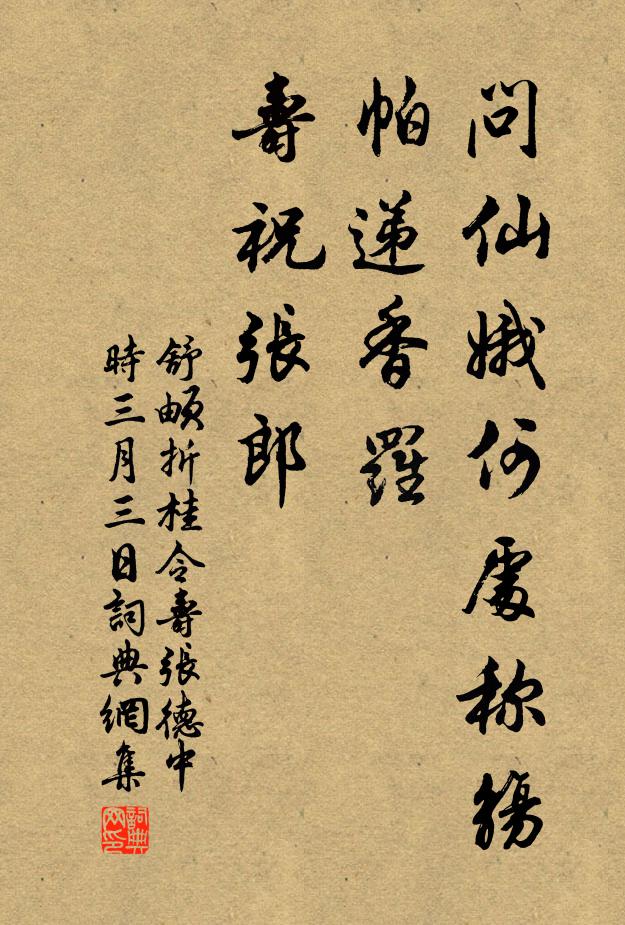 問仙娥何處称觴
帕递香羅
壽祝張郎
舒頔折桂令壽張德中
時三月三日詞典網集
詞典网印